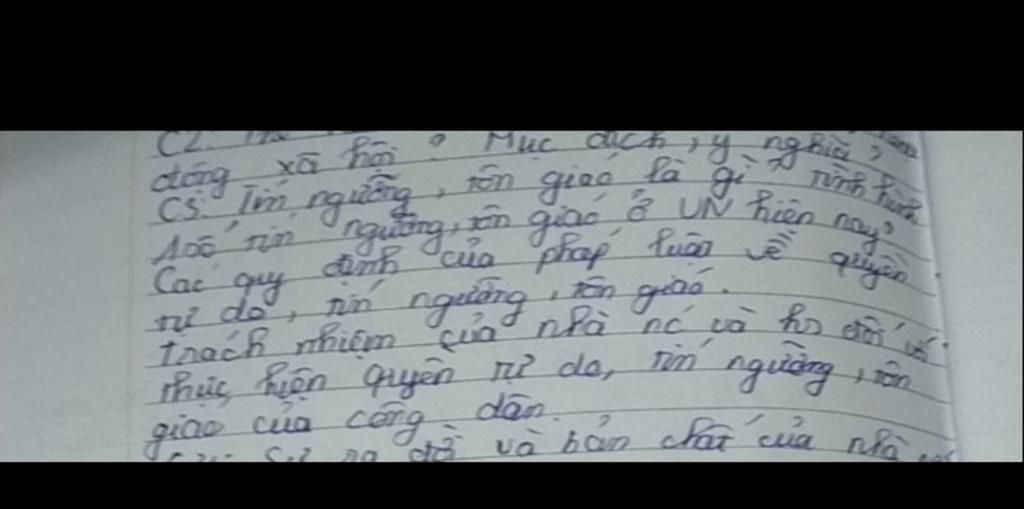 C2.
động xã hội? Mục đích, ý nghĩa?
C3. Tín ngưỡng, tôn giáo là gì? Tình hình
số tín ngưỡng, tôn giáo ở VN hiện nay?
Các quy định của pháp luận về quyền
tự do, tín ngưỡng, tôn giáo.
Trách nhiệm của nhà nc và hs đối với
thực hiện quyền tự do, tín ngưỡng, tôn
giáo của công dân.
ra đời và bản chất của nhà